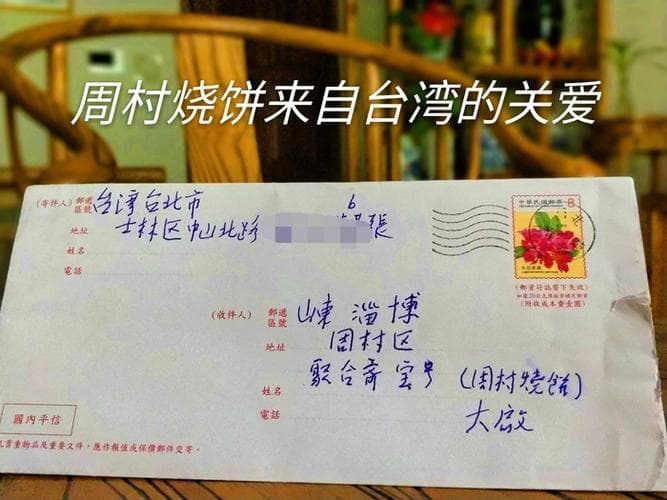 周村烧饼来自台湾的关爱
(寄件人) 郵遞區號 台湾台北市
地址 士林区中山北路 6 張
姓名
電話
中華民國郵票
8
(郵資符誌剪下失效)
(附收成本費壹圓)
(收件人) 郵遞區號 山東 淄博
地址 周村区
聚合斋宝号 (周村燒餅)
姓名
電話 大啟
國內平信
貴重物品及重要文件，應作報值或保價郵件交寄。